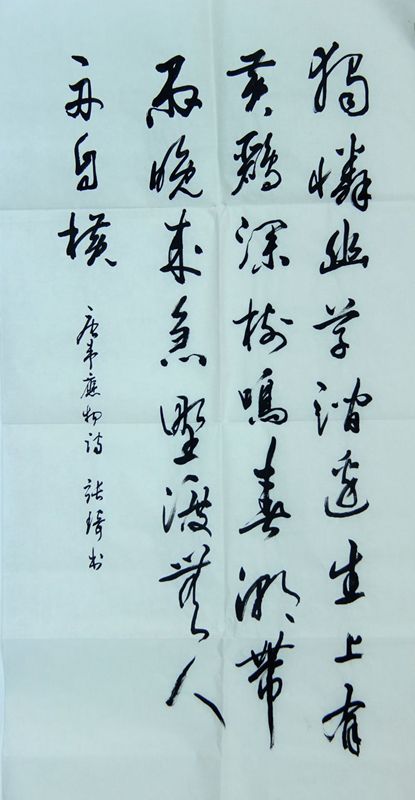 獨憐幽草澗邊生上有
黄鸝深樹鳴春潮帶
雨晚來急野渡無人
舟自横
唐韋應物詩 張書